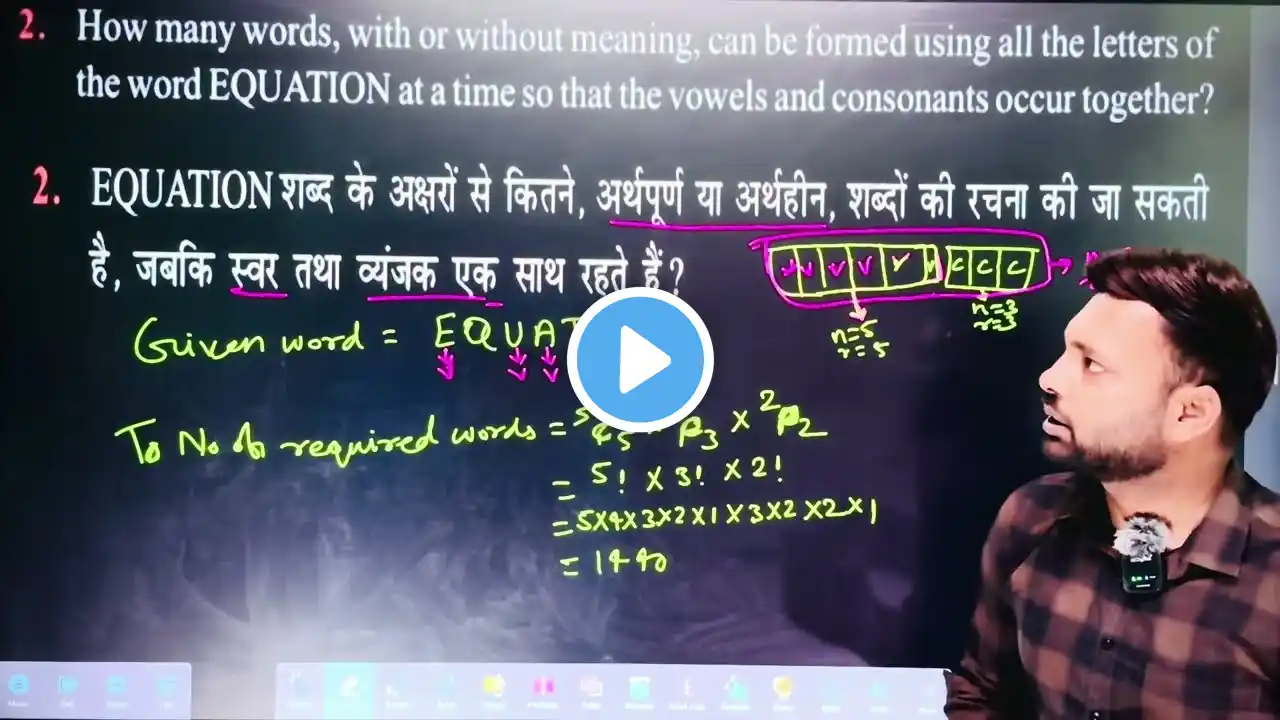 2. How many words, with or without meaning, can be formed using all the letters of
the word EQUATION at a time so that the vowels and consonants occur together?
2. EQUATION शब्द के अक्षरों से कितने, अर्थपूर्ण या अर्थहीन, शब्दों की रचना की जा सकती
है, जबकि स्वर तथा व्यंजक एक साथ रहते हैं?
V V V V V C C C
n=5
r=5
n=3
r=3
Given word = EQUAT
To No of required words = ⁵P₅ × P₃ × ²P₂
= 5! × 3! × 2!
= 5×4×3×2×1×3×2×2×1
= 1440